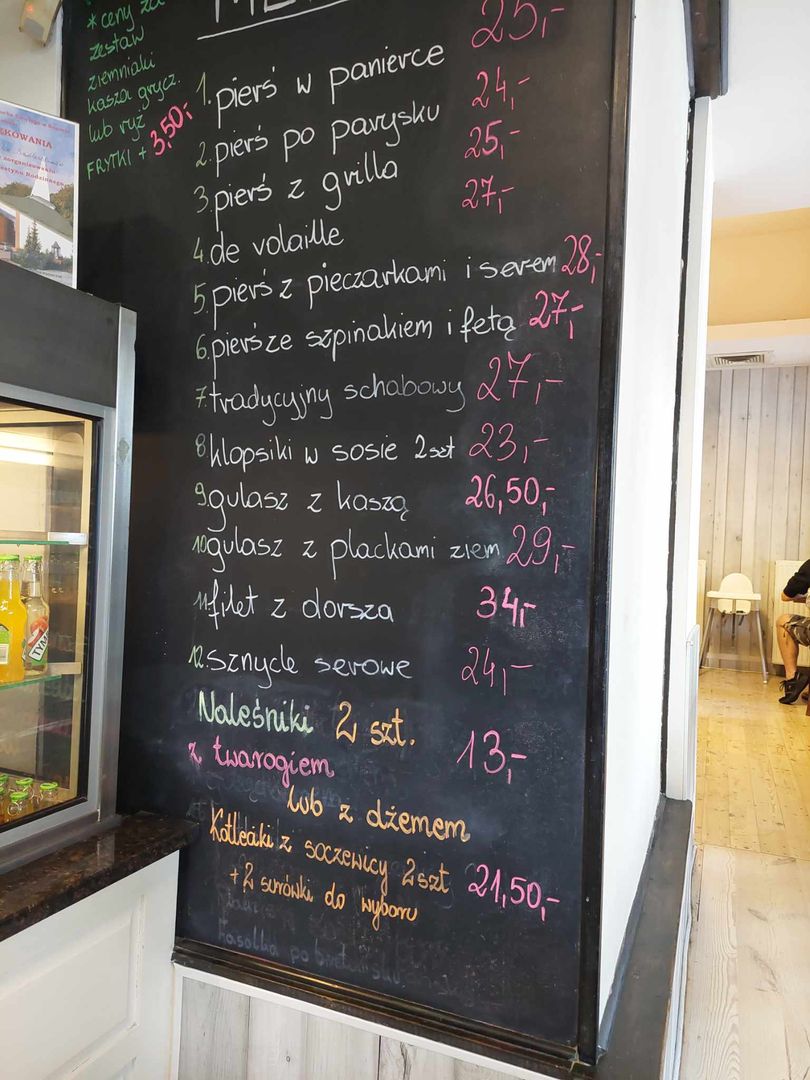 * ceny za
zestaw
ziemniaki
kasza grycz.
lub ryż
FRYTKI + 3,50,-
1. pierś w panierce 25,-
2. pierś po parysku 24,-
3. pierś z grilla 25,-
4. de volaille 27,-
5. pierś z pieczarkami i serem 28,-
6. pierś ze szpinakiem i fetą 27,-
7. tradycyjny schabowy 27,-
8 klopsiki w sosie 2 szt 23,-
9. gulasz z kaszą 26,50,-
10 gulasz z plackami ziem 29,-
11. filet z dorsza 34,-
12. sznycle serowe 24,-
Naleśniki 2 szt.
z twarogiem 13,-
lub z dżemem
Kotleciki z soczewicy 2 szt 21,50,-
+ 2 surówki do wyboru